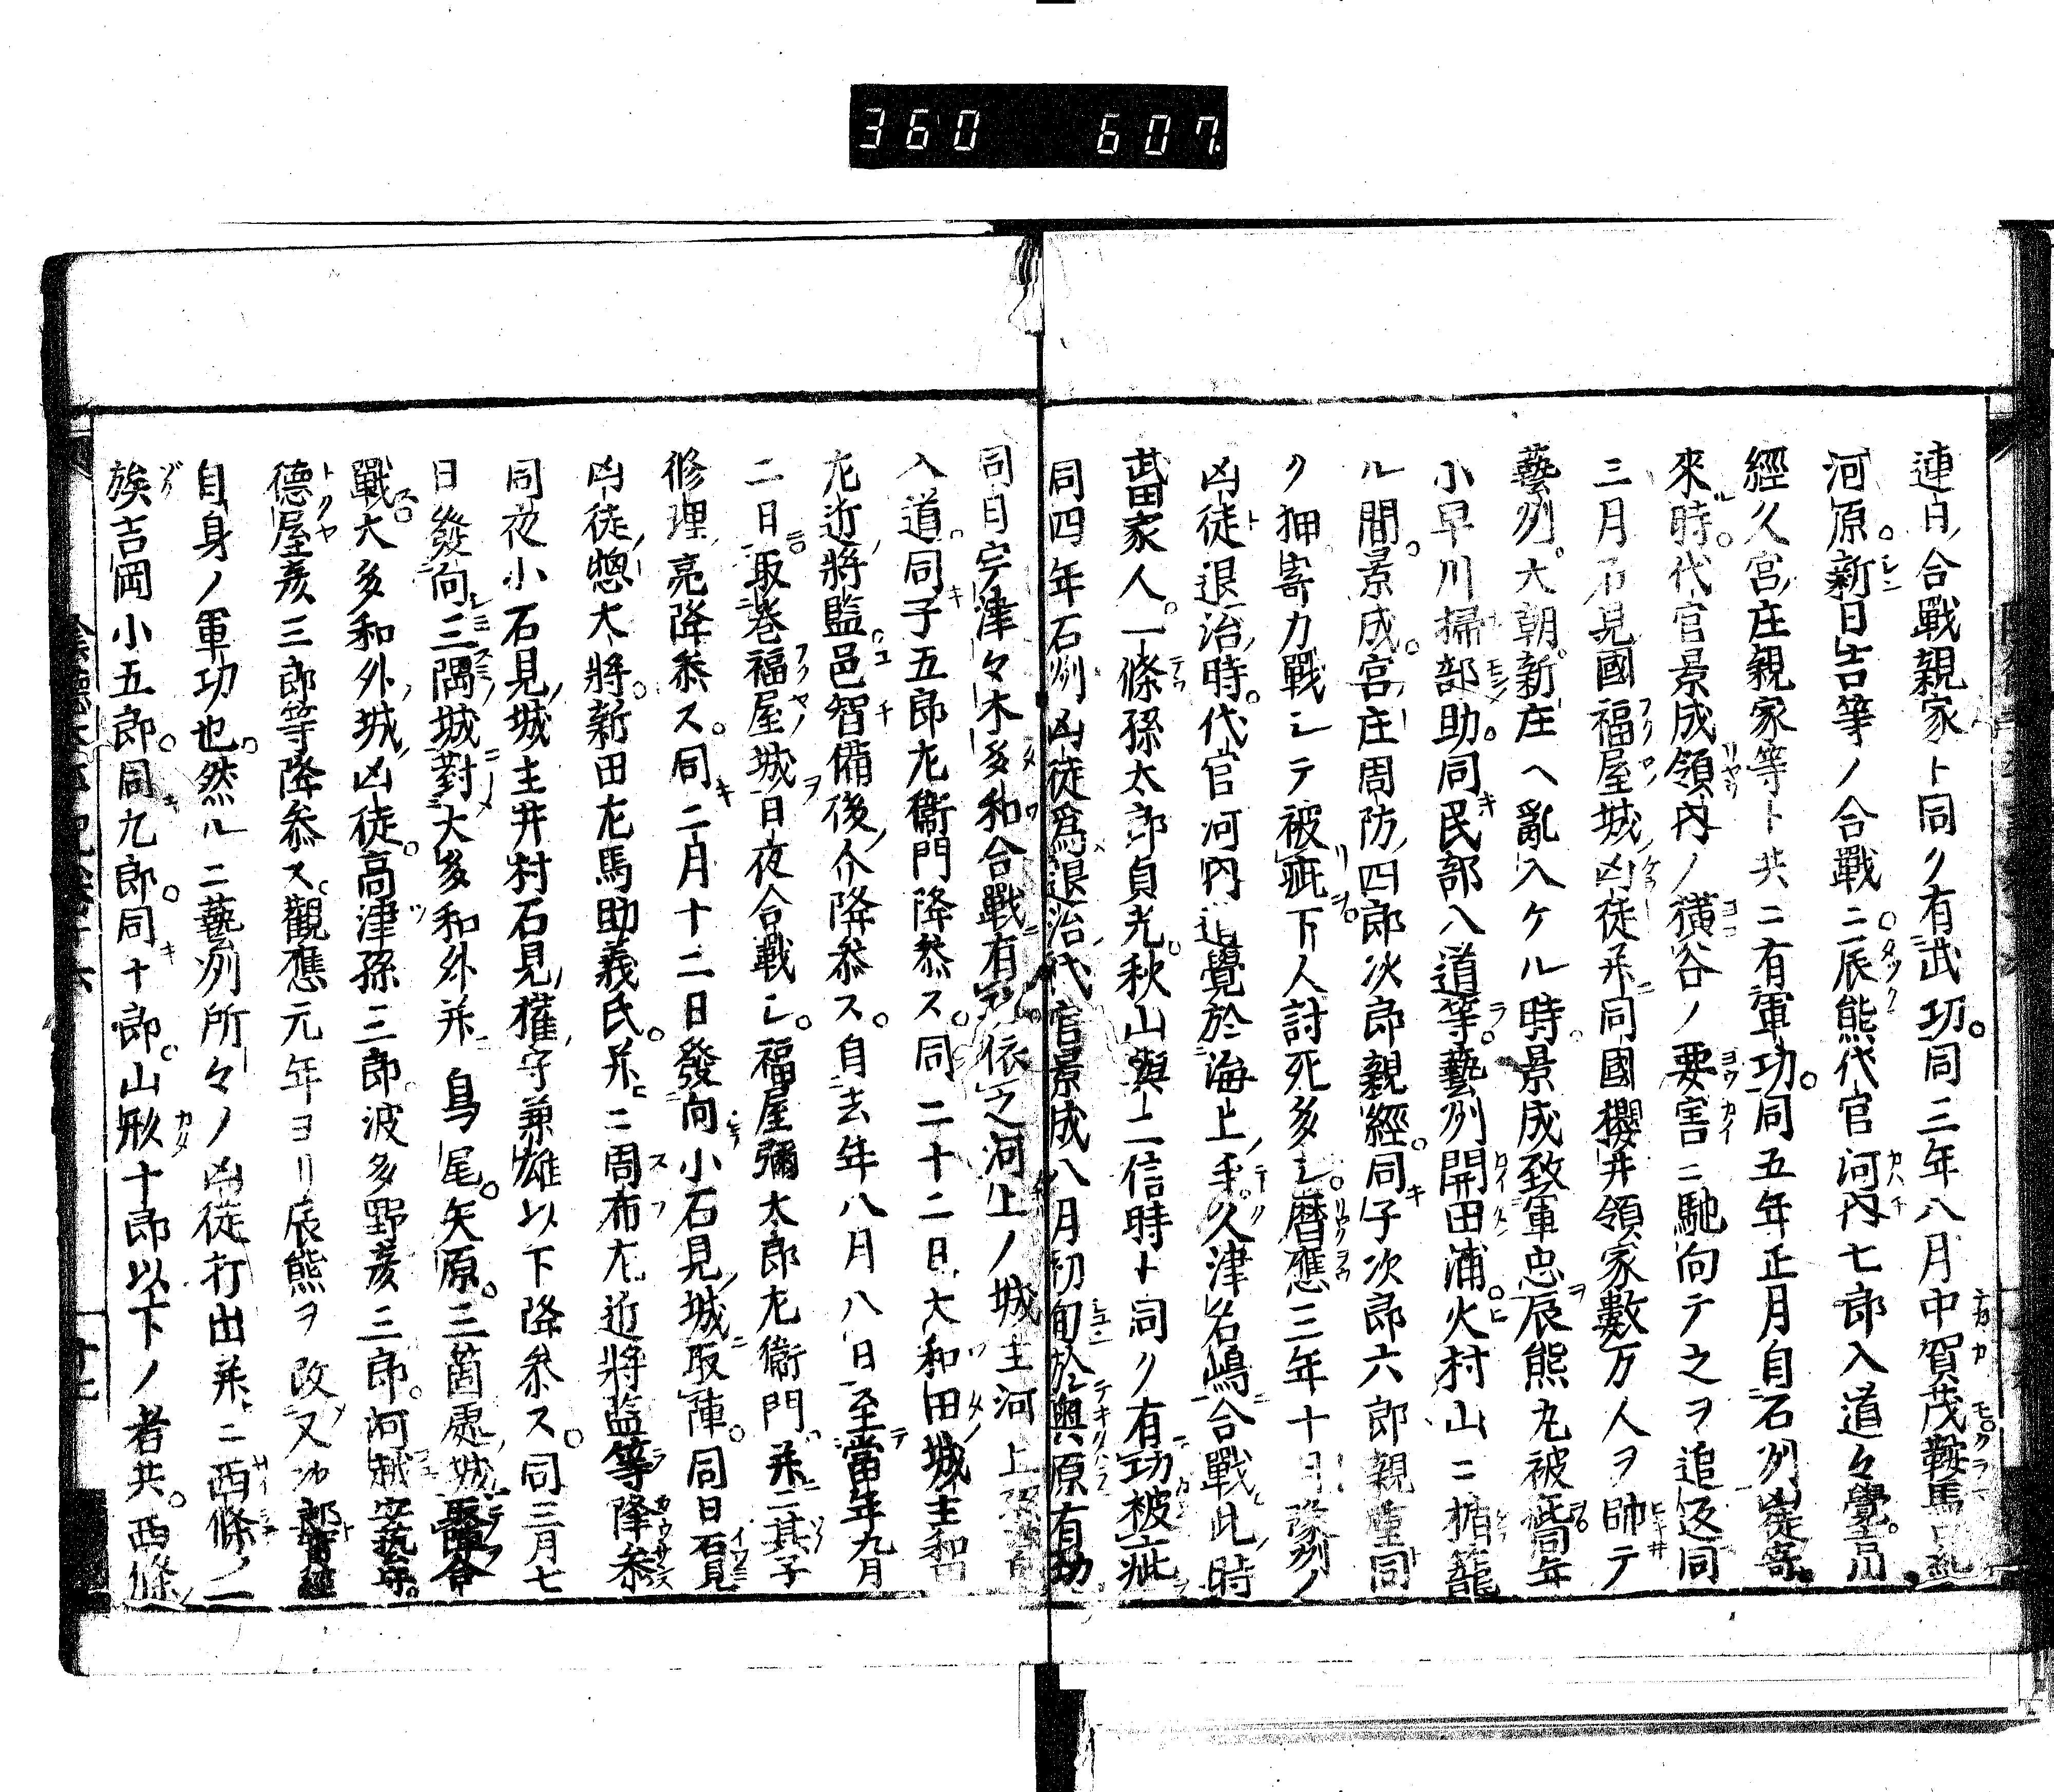 360 607.
連日合戰親家ト同ク有武功。同三年八月中賀茂鞍馬口
河原。新日吉等ノ合戰ニ。辰熊代官河内七郎入道々覺。吉川
經久宮庄親家等ト共ニ有軍功。同五年正月自石州嶷寄。
來時。代官景成領内ノ橫谷ノ要害ニ馳向テ之ヲ追返同
三月石見國福屋城凶徒并同國櫻井領家數万人ヲ帥テ
藝州。大朝新庄ヘ亂入ケル時。景成致軍忠辰熊丸被疵同年
小早川掃部助。同民部入道等。藝州開田浦。火村山ニ楯籠
ル間。景成。宮庄周防四郎次郎親經。同子次郎六郎親重同
ク押寄力戰シテ被疵下人討死多シ。曆應三年十月豫州ノ
凶徒退治時。代官河内道覺於海上手。久津名嶋合戰此時
武田家人。一條孫太郎貞光。秋山與二信時ト同ク有功被疵
同四年石州凶徒爲退治代官景成八月初旬於與原有功
同日宇津々木多和合戰有 依之河上ノ城主河上孫
入道。同子五郎左衞門降叅ス。同二十二日大和田城主和田
左近將監。邑智備後介降叅ス。自去年八月八日至當年九月
二日取巻福屋城日夜合戰シ。福屋彌太郎左衞門并其子
修理亮降叅ス。同二月十二日發向小石見城取陣。同日石見
凶徒惣大將。新田左馬助義氏。并ニ周布左近將監等降叅
同夜小石見城主井村石見權守兼雄以下降叅ス。同三月七
日發向三隅城對大多和外并鳥尾。矢原。三箇處城 合
戰大多和外城凶徒。高津孫三郎。波多野彦三郎。河越安藝守。
德屋彦三郎等降叅ス。觀應元年ヨリ辰熊ヲ改又次郎 經
自身ノ軍功也。然ルニ藝州所々ノ凶徒打出并ニ西條ノ一
族吉岡小五郎。同九郎。同十郎。山形十郎以下ノ者共。西條